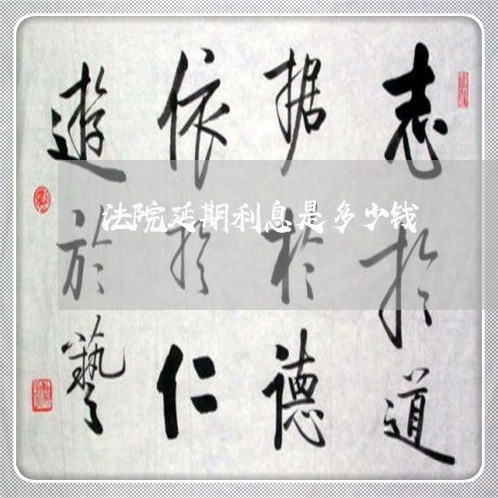 志於道
据於德
依於仁
遊於藝
法院延期利息是多少钱